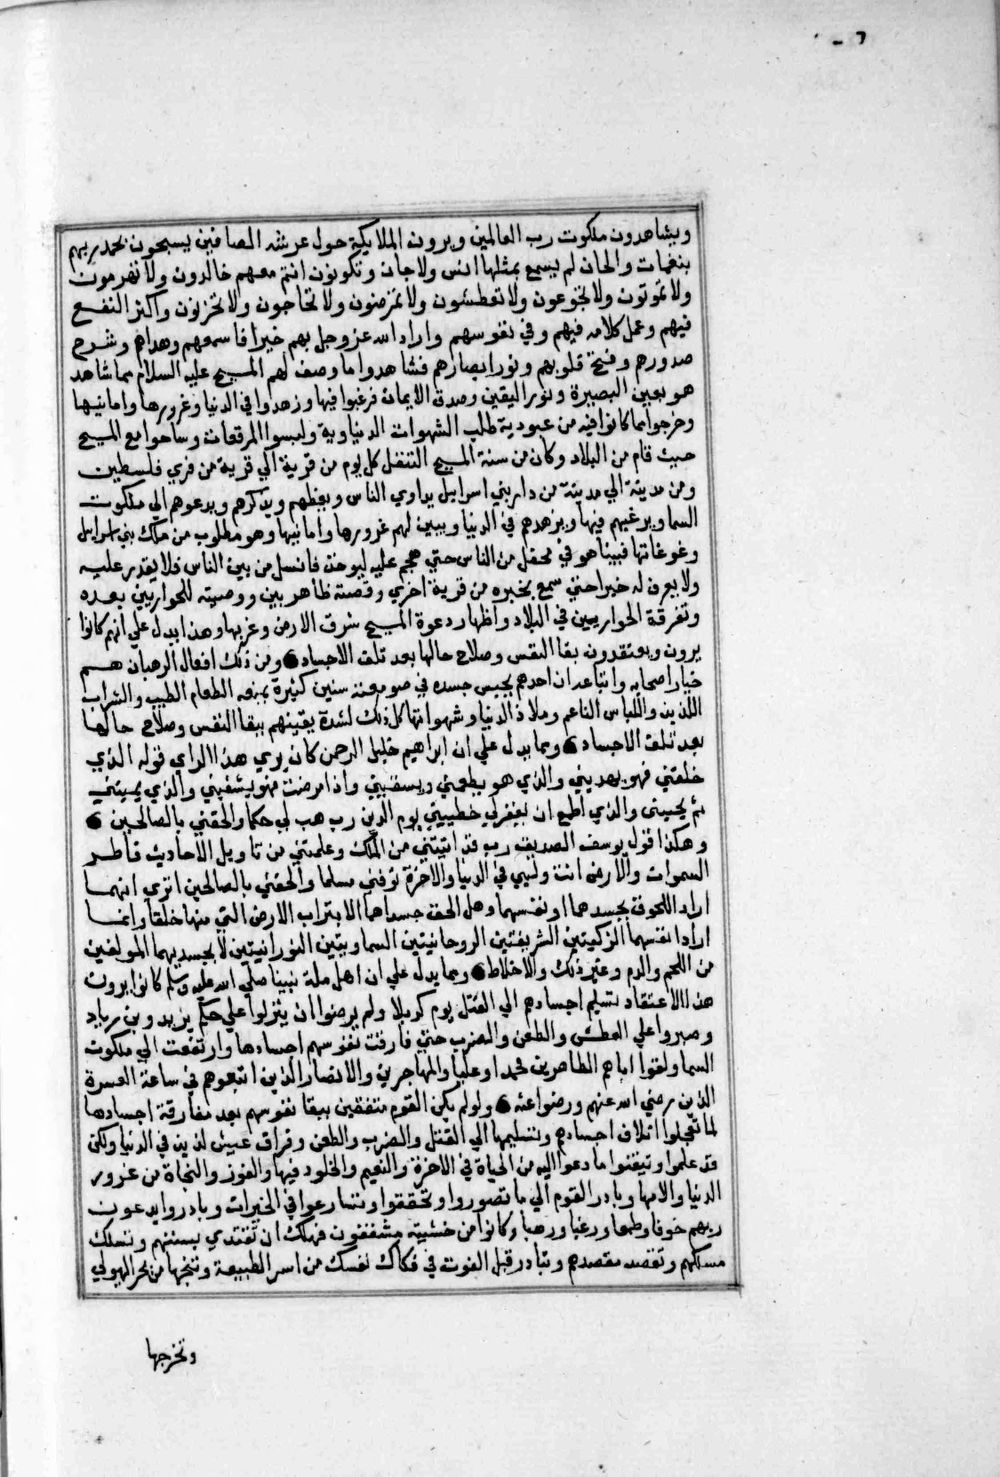 ويشاهدون ملكوت رب العالمين ويرون الملايكة حول عرشه الصافين يسبحون بحمد ربهم
بنغمات والحان لم يسمع بمثلها انس ولا جان وتكونون انتم معهم خالدون ولا تهرمون
ولا تموتون ولا تجوعون ولا تعطشون ولا تمرضون ولا تخافون ولا تحزنون واكثر النفع
فيهم وعمل كلامه فيهم وفي نفوسهم واراد الله عز وجل بهم خيرا فاسمعهم وهداهم وشرح
صدورهم وفتح قلوبهم ونور ابصارهم فشاهدوا ما وصف لهم المسيح عليه السلام مما شاهد
هو بعين البصيرة ونور اليقين وصدق الايمان فرغبوا فيها وزهدوا في الدنيا وغرورها وامانيها
وخرجوا مما كانوا فيه من عبودية طلب الشهوات الدنياوية ولبسوا المرقعات وساحوا مع المسيح
حيث قام من البلاد وكان من سنة المسيح التنقل كل يوم من قرية الي قرية من قري فلسطين
ومن مدينة الي مدينة من دار بني اسرايل يداوي الناس ويعظهم ويذكرهم ويدعوهم الي ملكوت
السما ويرغبهم فيها ويزهدهم في الدنيا ويبين لهم غرورها وامانيها وهو مطلوب من ملك بني اسرايل
وغوغائها فبينا هو في محفل من الناس حتي هجم عليه ليوخذ فانسل من بين الناس فلا يقدر عليه
ولا يعرف له خبرا حتي سمع بخبره من قرية اخري وقصته ظاهر بين ووصيته للحواريين بعده
وتفرقة الحواريين في البلاد واظهار دعوة المسيح شرق الارض وغربها وهذا يدل علي انهم كانوا
يرون ويعتقدون بقا النفس وصلاح حالها بعد تلف الاجساد ومن ذلك افعال الرهبان هم
خيار اصحابه واتباعه ان احدهم يحبس جسده في صومعته سنين كثيرة يمنعه الطعام الطيب والشراب
اللذيذ واللباس الناعم وملاذ الدنيا وشهواتها كل ذلك لشدة يقينهم ببقا النفس وصلاح حالها
بعد تلف الاجساد ومما يدل علي ان ابراهيم خليل الرحمن كان يري هذا الراي قوله الذي
خلقني فهو يهديني والذي هو يطعمني ويسقيني واذا مرضت فهو يشفيني والذي يميتني
ثم يحييني والذي اطمع ان يغفر لي خطيتي يوم الدين رب هب لي حكما والحقني بالصالحين
وهكذا قول يوسف الصديق رب قد اتيتني من الملك وعلمتني من تاويل الاحاديث فاطر
السموات والارض انت وليي في الدنيا والاخرة توفني مسلما والحقني بالصالحين اتري انهما
ارادا اللحوق بجسدهما او نفسهما وهل الحق جسداهما الا بتراب الارض التي منها خلقا وانما
ارادا نفسهما الزكيتين الشريفتين الروحانيتين السماويتين النورانيتين لا بجسديهما المولفين
من اللحم والدم وغير ذلك والاخلاط ومما يدل علي ان اهل ملة نبينا صلي الله عليه وسلم كانوا يرون
هذا الاعتقاد تسليم اجسادهم الي القتل يوم كربلا ولم يرضوا ان ينزلوا علي حكم يزيد وبن زياد
وصبروا علي العطش والطعن والضرب حتي فارقت نفوسهم اجسادها وارتفعت الي ملكوت
السما ولقوا اباهم الطاهرين محمدا وعليا والمهاجرين والانصار الذين اتبعوهم في ساعة العسرة
الذين رضي الله عنهم ورضوا عنه ولو لم يكن القوم متفقين ببقا نفوسهم بعد مفارقة اجسادها
لما تعجلوا اتلاف اجسادهم وتسليمها الي القتل والضرب والطعن وفراق عيش لذيذ في الدنيا ولكن
قد علموا وتيقنوا ما دعوا اليه من الحياة في الاخرة والنعيم والخلود فيها والفوز والنجاة من غرور
الدنيا والامها وبادر القوم الي ما تصوروا وتحققوا وتسارعوا في الخيرات وبادروا يدعون
ربهم خوفا وطمعا ورغبا ورهبا وكانوا من خشيته مشفقون فهل لك ان تقتدي بسنتهم وتسلك
مسلكهم وتقصد مقصدهم وتبادر قبل الفوت في فكاك نفسك من اسر الطبيعة وتنجها من بحر الهيولي
وتخرجها